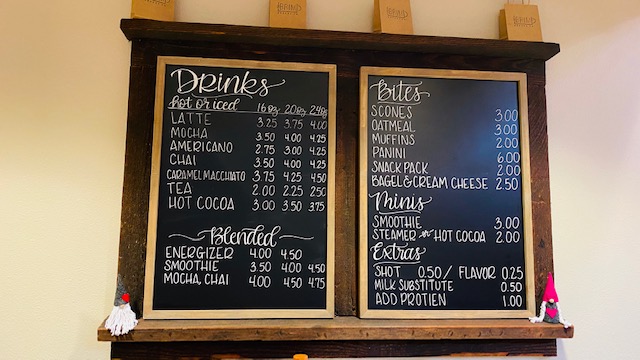 Drinks
hot or iced 16oz 20oz 24oz
LATTE 3.25 3.75 4.00
MOCHA 3.50 4.00 4.25
AMERICANO 2.75 3.00 4.25
CHAI 3.50 4.00 4.25
CARAMEL MACCHIATO 3.75 4.25 4.50
TEA 2.00 2.25 2.50
HOT COCOA 3.00 3.50 3.75
Blended
ENERGIZER 4.00 4.50
SMOOTHIE 3.50 4.00 4.50
MOCHA, CHAI 4.00 4.50 4.75
Bites
SCONES 3.00
OATMEAL 3.00
MUFFINS 2.00
PANINI 6.00
SNACK PACK 2.00
BAGEL & CREAM CHEESE 2.50
Minis
SMOOTHIE 3.00
STEAMER or HOT COCOA 2.00
Extras
SHOT 0.50 / FLAVOR 0.25
MILK SUBSTITUTE 0.50
ADD PROTIEN 1.00